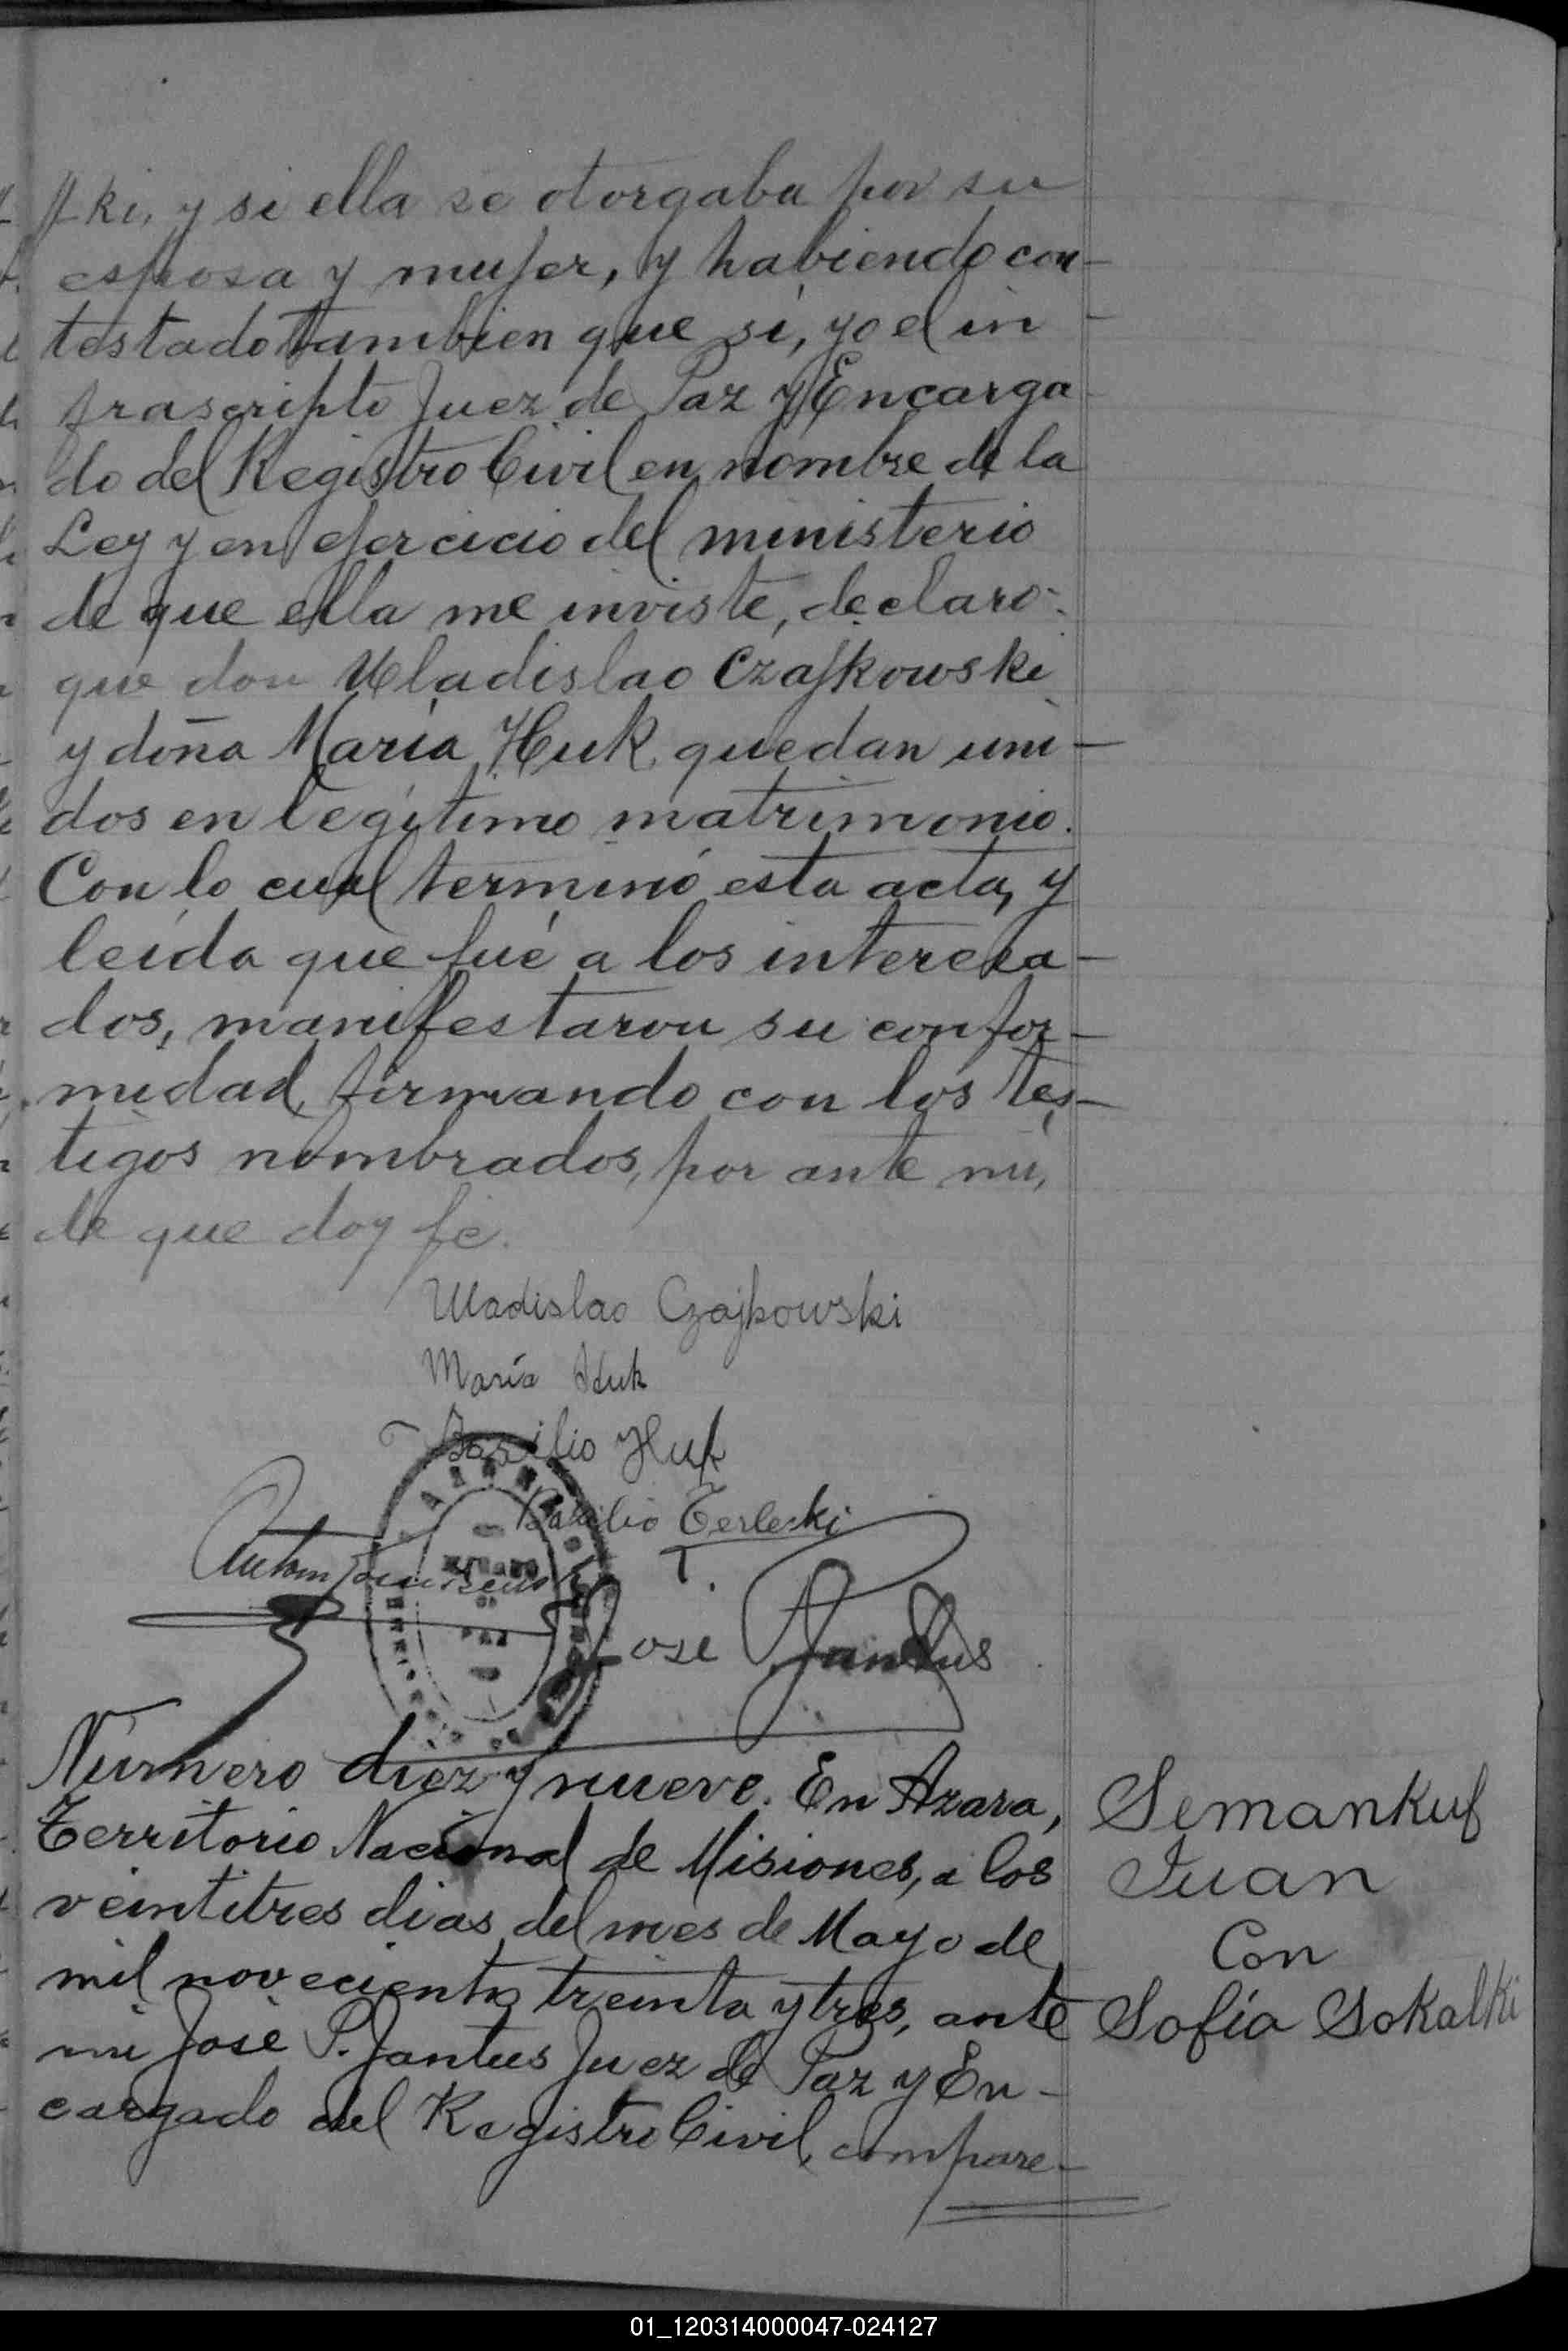 ki, y si ella se otorgaba por su
esposa y mujer, y habiendo con-
testado tambien que si, yo el in
frascripto Juez de Paz y Encarga
do del Registro Civil en nombre de la
Ley y en ejercicio del ministerio
de que ella me inviste, declaro:
que don Uladislao Czajkowski
y doña María Huk, quedan uni-
dos en legítimo matrimonio.
Con lo cual terminó esta acta, y
leída que fué a los interesa-
dos, manifestaron su confor-
midad, firmando con los tes-
tigos nombrados, por ante mi,
de que doy fé.
Uladislao Czajkowski
María Huk
Basilio Huk
Basilio Terlecki
José Jantus
Número diez y nueve. En Azara,
Territorio Nacional de Misiones, a los
veintitres dias del mes de Mayo de
mil novecientos treinta y tres, ante
mi José P. Jantus Juez de Paz y En-
cargado del Registro Civil, compare-
Semankuf
Juan
Con
Sofía Sokalki
01_120314000047-024127